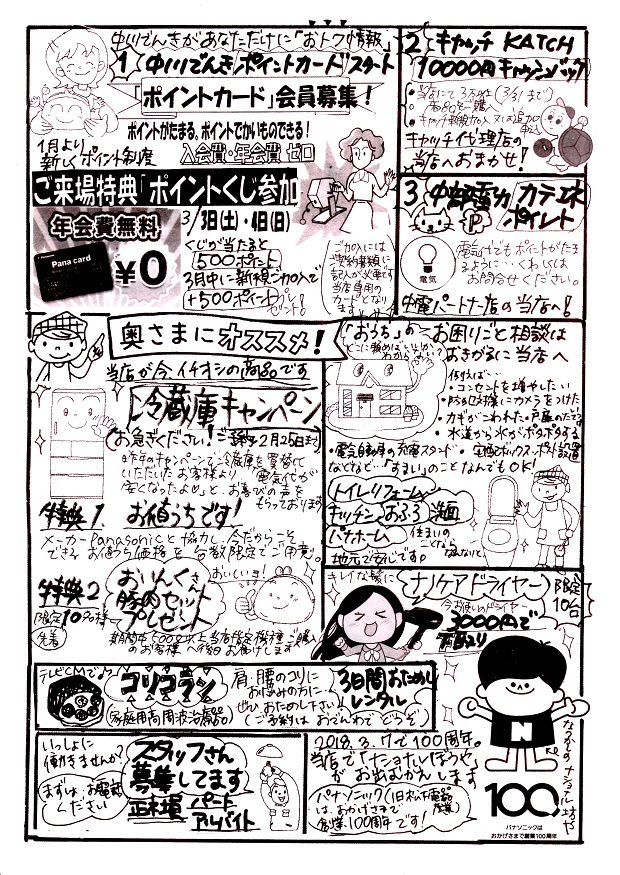 中川でんきがあなただけに「おトク情報」
1 中川でんきポイントカードスタート
「ポイントカード」会員募集!
ポイントがたまる、ポイントでかいものできる!
1月より
新しくポイント制度
入会費・年会費 ゼロ
ご来場特典「ポイントくじ参加
年会費無料
Pana card
¥0
3/3日(土)・4日(日)
くじが当たると
500ポイント
3月中に新規ご加入で
+500ポイント
プレゼント。
ご加入には
ご契約書類に
記入が必要です
当店専用の
カードとなり
ます
2 キャッチ KATCH
10000円キャッシュバック
・当店にて3万以上(3/31まで)
・キャッチ新規加入又は追加
キャッチ代理店の
当店へおまかせ!
3 中部電力 カテエネ
P ポイント
電気
電気代でもポイントがたま
るように…くわしくは
お問合せください。
中電パートナー店の当店へ!
奥さまにオススメ!
当店が今イチオシの商品です
冷蔵庫キャンペーン
(お急ぎください!ご予約2月25日まで)
昨年のキャンペーンで冷蔵庫を買替て
いただいたお客様より「電気代が
安くなったよ」と、お喜びの声を
もらっております
特典1. お値うちです!
メーカーPanasonicと協力し、今だからこそ
できるお値うち価格を台数限定でご用意。
特典2
限定10名様
先着
おいんくさん
豚肉セット
プレゼント
おいしいョ!
「おうち」のお困りごと相談は
どこに頼めばいいか
わからない?
おきがるに当店へ
例えば…
・コンセントを増やしたい
・防犯対様にカメラをつけた
・カギがこわれた・戸屋のたてつけ
・水道から水がポタポタする
・電気自動車の充電スタンド・宅配ボックス・ポスト設置
などなど…「すまい」のことなんでもOK!
トイレリフォーム
キッチン おふろ 洗面
パナホーム
住まいの
ことなら
なんなりと
地元で安心です。
キレイな髪に
ナノケアドライヤー
限定
10台
今お使いのドライヤー
3000円で
下取り
テレビCMでも
コリコラン
(家庭用高周波治療器)
肩・腰のコリに
お悩みの方に…
ぜひおためし下さい
(ご予約はおでんわでどうぞ)
3日間おためし
レンタル
いっしょに
働きませんか?
まずは、お電話
ください
スタッフさん
募集してます
正社員 パート
アルバイト
2018.3.7で100周年。
当店で「ナショナルぼうや」
がお出むかえします
パナソニック(旧松下電器
産業)
は、おかげさまで
創業100周年です!
N
なつかしのナショナル坊や
100
パナソニックは
おかげさまで創業100周年